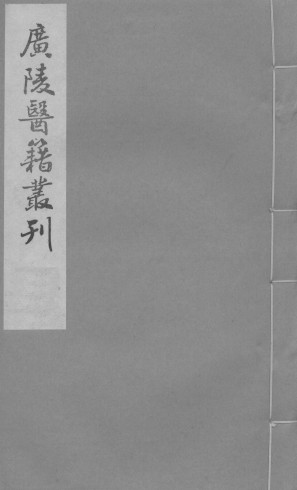 廣陵醫籍叢刊